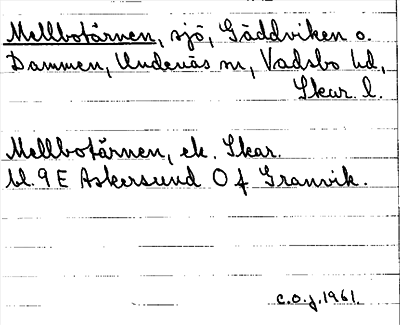 Mellbotärnen, sjö, Gäddviken o.
Dammen, Undenäs sn, Vadsbo hd,
Skar. l.
Mellbotärnen, ek. Skar.
bl. 9 E Askersund O f Granvik.
c.o.j. 1961.